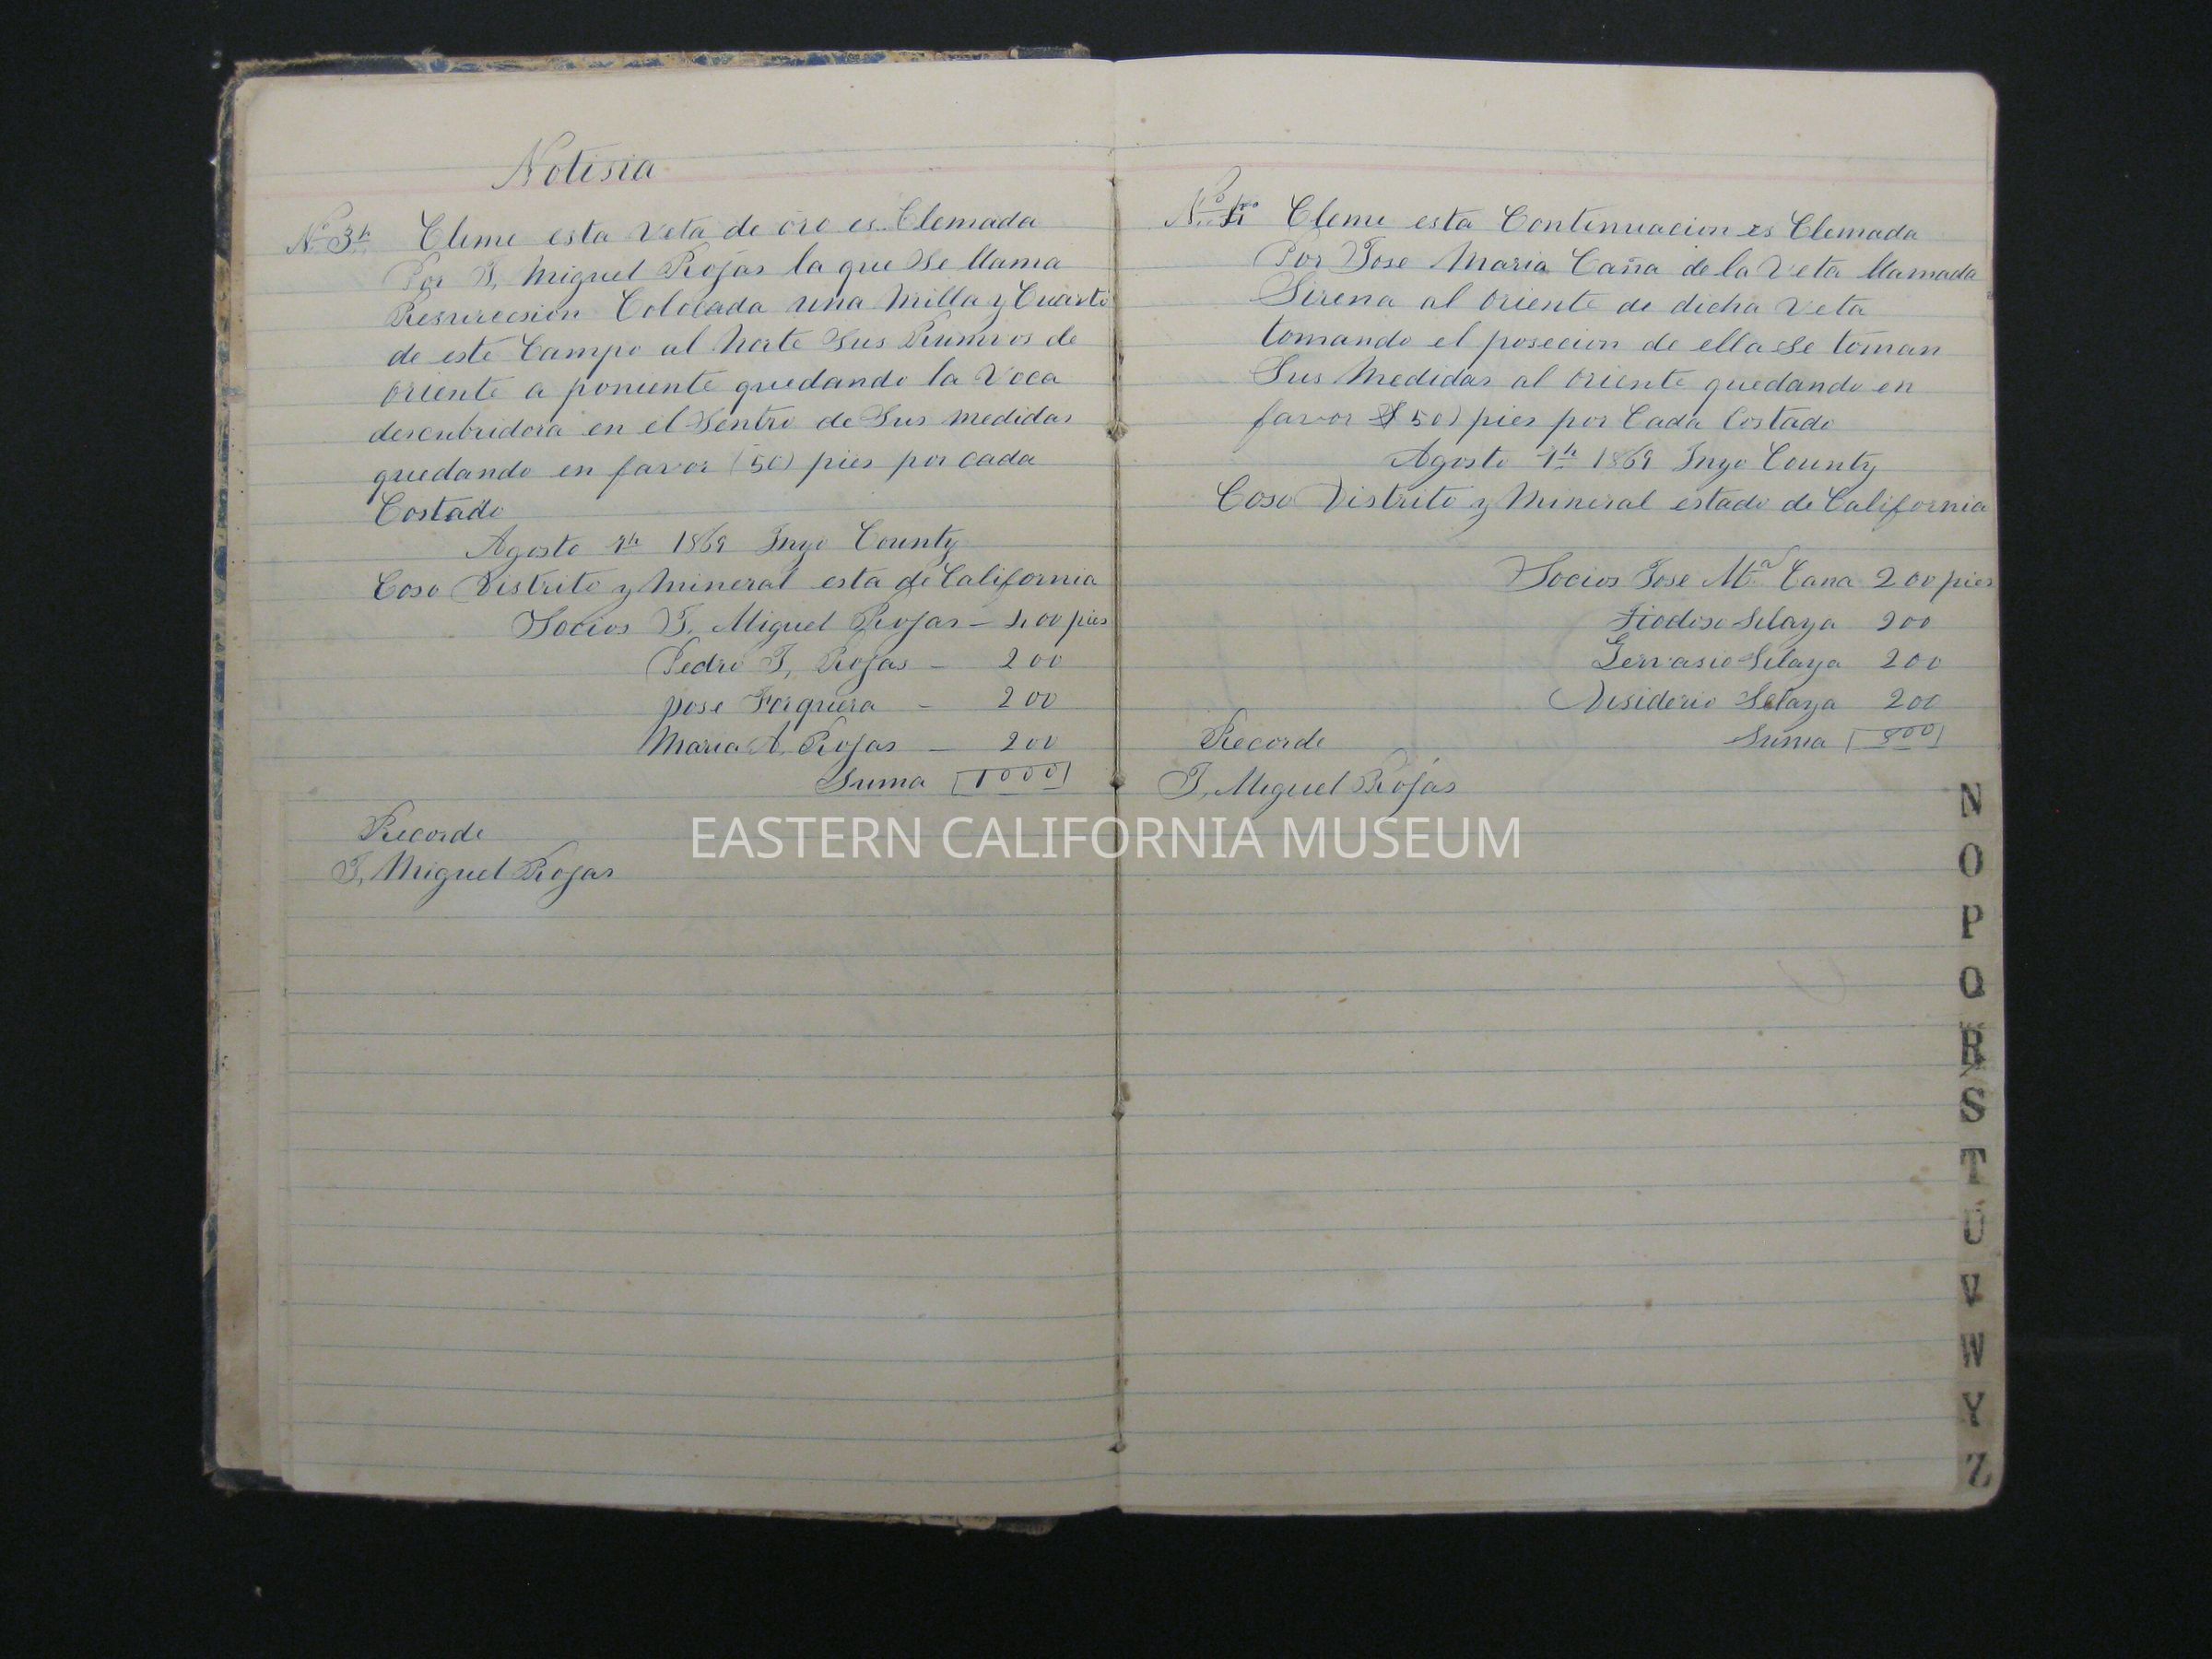 Notisia
No 3h Cleme esta Veta de oro es Clemada
Por J, Miguel Rojas la que Se llama
Resurecsion Colocada una Milla y Cuarto
de este Campo al Norte Sus Rumvos de
oriente a poniente quedando la Voca
descubridora en el Sentro de Sus medidas
quedando en favor (50) pies por cada
Costado
Agosto 1h 1869 Inyo County
Coso Distrito y Mineral esta de California
Socios J. Miguel Rojas – 400 pies
Pedro J, Rojas – 200
pose Forquera – 200
Maria A. Rojas – 200
Suma 1000
Recorde
J, Miguel Rojas
No 4to Cleme esta Continuacion es Clemada
Por Jose Maria Caña de la Veta llamada
Sirena al oriente de dicha Veta
tomando el posecion de ella se toman
Sus Medidas al oriente quedando en
favor 50) pies por Cada Costado
Agosto 1h 1869 Inyo County
Coso Distrito y Mineral estado de California
Socios Jose Ma Cana 200 pies
Tiodoso Selaya 200
Gervasio Selaya 200
Disiderio Selaya 200
Suma 800
Recorde
J, Miguel Rojas
EASTERN CALIFORNIA MUSEUM
N
O
P
Q
R
S
T
U
V
W
Y
Z